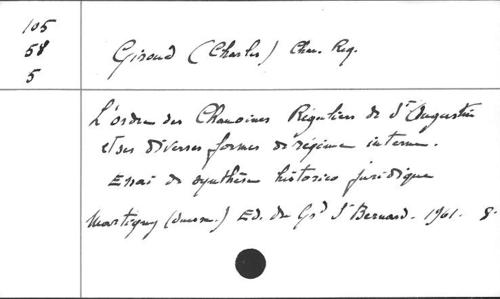 105
58
5
Giroud (Charles) Chan. Reg.
L'ordre des Chanoines Réguliers de St Augustin
et ses diverses formes de régime interne.
Essai de synthèse historico juridique
Martigny (Suisse.) Ed. du Gd St Bernard. 1961. 8.